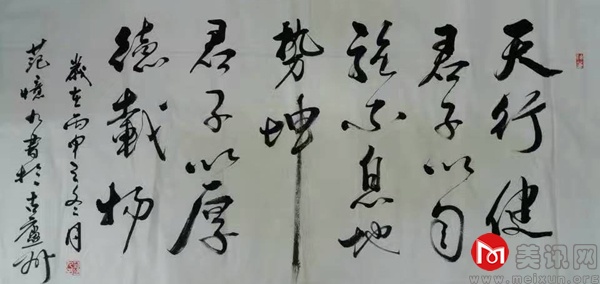 天行健
君子以自
强不息地
勢坤
君子以厚
德載物
歲在丙申之冬月
范憶書於古廬州
美讯网
www.meixun.org